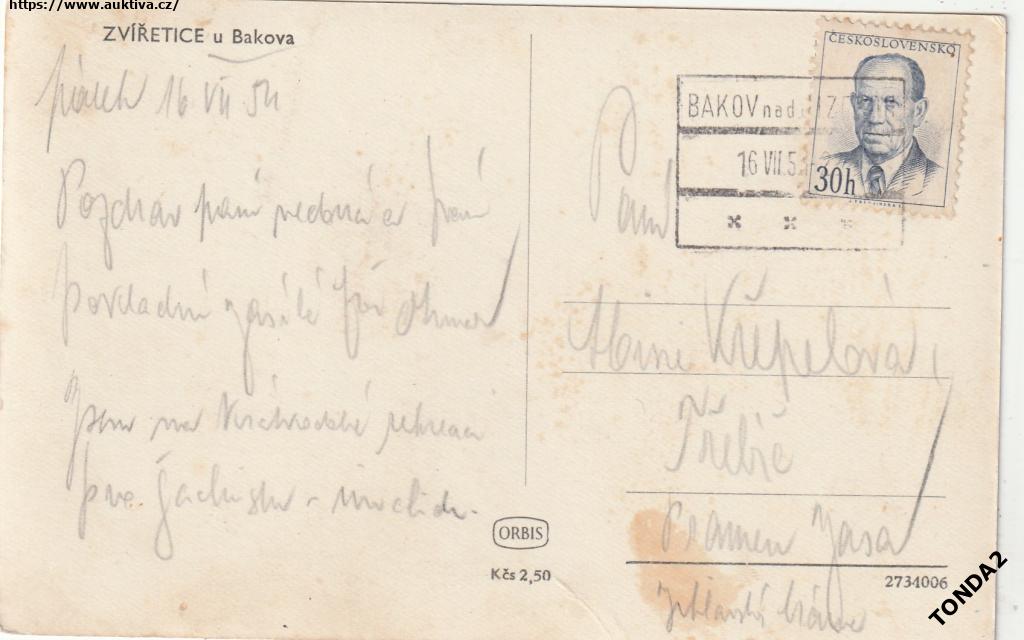 https://www.auktiva.cz/
ZVÍŘETICE u Bakova
pátek 16 VII 54
Pozdrav paní vedoucí a paní
pokladní zasílá
Jsem na rekreaci
pro šachisty - invalidy.
ORBIS
Kčs 2,50
ČESKOSLOVENSKO
30h
BAKOV nad
16 VII.5
Paní
Křepelová
Třebíč
Pramen Jasa
Jihlavská brána
2734006
TONDA2